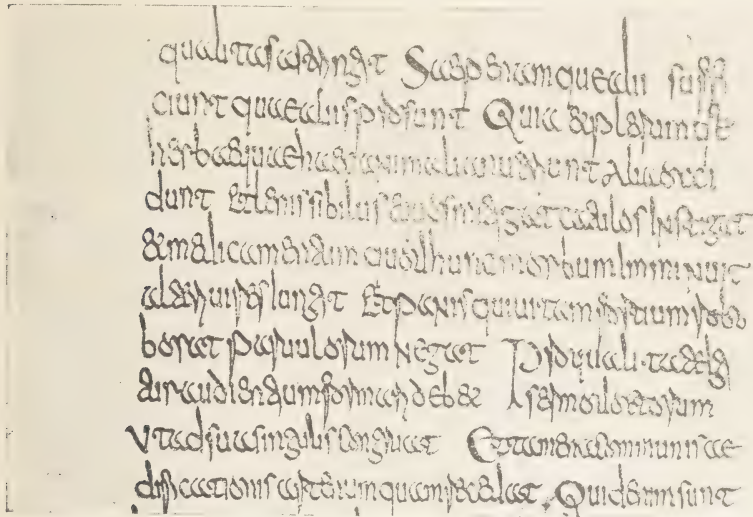 qualitas astringit Saepe namque alii suffi
ciunt quae aliis prosunt Quia et plerumque
herbae quae haec animalia nutriunt alia occi
dunt Et lenis sibilus equos mitigat catulos instigat
et medicamentum quod hunc morbum imminuit
alteri vires iungit Et panis qui vitam fortium robo
borat parvulorum negat Pro qualitate igi
tur audientium formari debet sermo doctorum
Ut ad sua singulis congruat Et tamen a communis ae
dificationis arte numquam recedat. Quid enim sunt